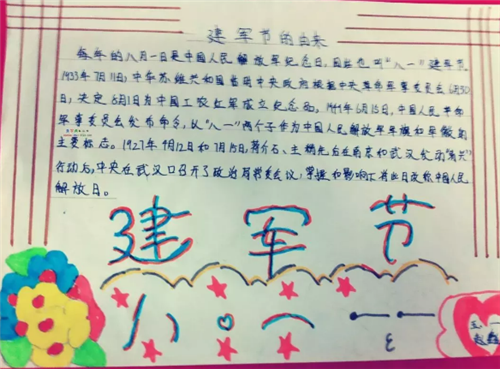 建军节的由来
每年的八月一日是中国人民解放军纪念日,因此也叫“八一”建军节
1933年7月11日,中华苏维共和国当时中央政府根据中央革命军事委员会6月30
日,决定8月1日为中国工农红军成立纪念品。1949年6月15日,中国人民革命
军事委员会发布命令,从“八一”两个子作为中国人民解放军军旗和军徽的
主要标志。1927年4月12日和7月15日,蒋介石、主精先后在南京和武汉发动“清共”
行动后,中央在武汉口召开了政治局常委会议,掌握和影响工将此日改称中国人民
解放日。
建军节
八 一